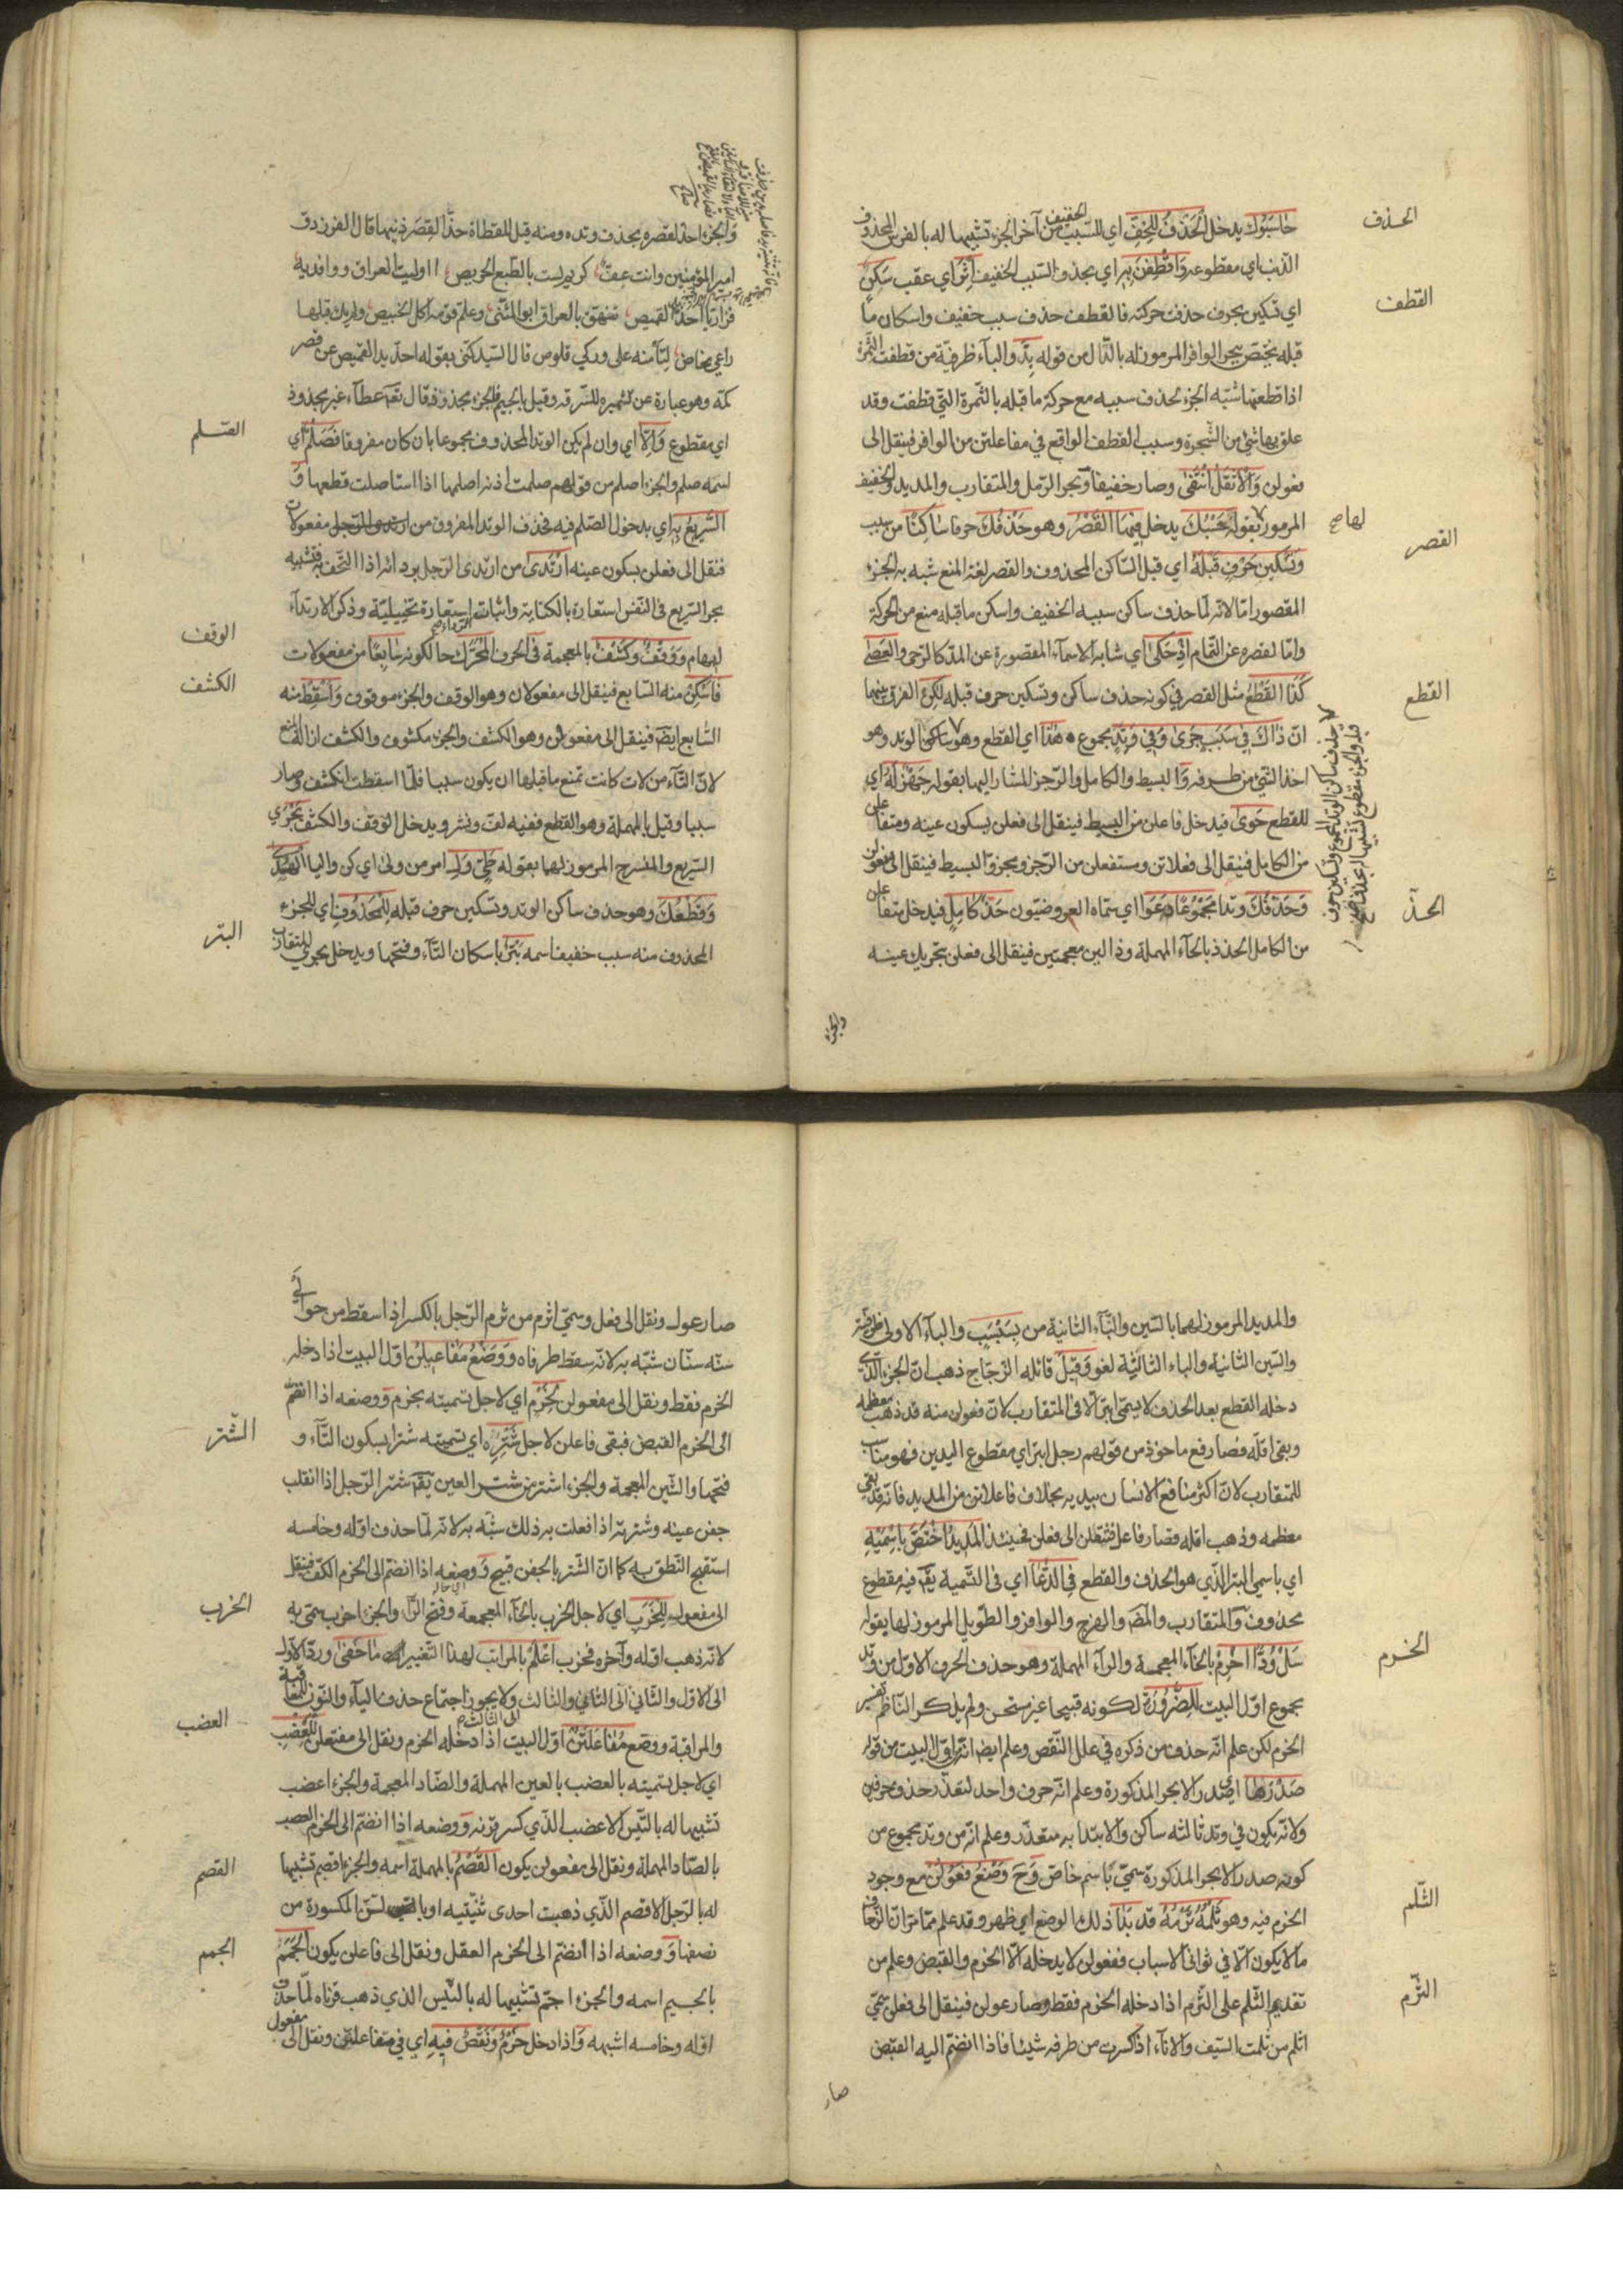 الحذف
حاسَبُوك يدخل الحَذْفُ لِلخِفِّ اي للسّبب الخفيف من آخر الجزء تشبيها له بالفرس المحذوف
الذنب اي مقطوعه وَاقْطِفَنْ بِهِ اي بحذف السّبب الخفيف اثْرَ اي عقب سَكنٍ
القطف
اي تسكين بحرف حذفت حركته فالقطف حذف سبب خفيف واسكان ما
قبله يختص ببحر الوافر المرموز له بالدّال من قوله بِدٍّ والباء ظرفيّة من قطفت الثمرة
اذا قطعتها شبّه الجزء بحذف سببه مع حركة ما قبله بالثّمرة التي قطفت وقد
علق بها شئ من الشّجرة وسبب القطف الواقع في مفاعلتن من الوافر فينقل الى
فعولن وَالاثقَل انْتَفَى وصار خفيفا وبحر الرّمل والمتقارب والمديد والخفيف
المرموز لها بقوله حَسْبُكَ يدخل فِيهَا القَصْرُ وهو حَذْفُكَ حرفا سَاكِنًا من سبب
القصر
وَتَسْكِين حَرْفٍ قَبْلَهُ اي قبل السّاكن المحذوف والقصر لغة المنع شبه به الجزء
المقصور امّا لانّه لمّا حذف ساكن سببه الخفيف واسكن ما قبله منع من الحركة
وامّا لقصره عن التمام اذْ حَكَى اي شابه الاسماء المقصورة عن المدّ كالرحى والعصا
كَذَا القَطْعُ مثل القصر في كونه حذف ساكن وتسكين حرف قبله لكِن الفرق بينهما
القطع
انّ ذَاكَ فِي سَبَبٍ جَرَى وَفِي وَتِدٍ مجموع هَذَا اي القطع وهو ساكن الوتد وهو
اخذ الشئ من طرفه وَالبسيط والكامل والرّجز المشار اليها بقوله جَهْزُ لَهُ اي
للقطع حَوَى فيدخل فاعلن من البسيط فينقل الى فعلن بسكون عينه ومتفاعلن
من الكامل فينقل الى فعلاتن ومستفعلن من الرّجز ومجزوّ البسيط فينقل الى مفعولن
وَحَذْفُكَ وتدا مَجْمُوعًا دَعَوْا اي سمّاه العروضيّون حَذَّ كَامِلٍ فيدخل متفاعلن
الحذّ
من الكامل الحذذ بالحاء المهملة وذالين معجمتين فينقل الى فعلن بتحريك عينه
والجزء
والجزء احذّ لقصره بحذف وتده ومنه قيل للقطاة حذّا لقِصَر ذنبها قال الفرزدق
امير المؤمنين وانت عفّ كريم لست بالطّبع الحريص اوليت العراق ورافديه
فزاريّا احذّ القميص تفيهق بالعراق ابو المثنّى وعلّم قومه اكل الخبيص ولم يك قبلها
راعي مخاض ليأمنه على وركي قلوص قال السّيد كنّى بقوله احذّ يد القميص عن قصر
كمّه وهو عبارة عن تشميره للسّرقة وقيل بالجيم فالجزء مجذوذ قال تع عطاء غير مجذوذ
اي مقطوع وَالّا اي وان لم يكن الوتد المحذوف مجموعا بان كان مفروقا فَصَلْمٌ اي
الصّلم
اسمه صلم والجزء اصلم من قولهم صلمت اذنه اصلمها اذا استأصلت قطعها وَ
السَّرِيعُ بِهِ اي بدخول الصّلم فيه فحذف الوتد المفروق من مفعولات
فنقل الى فعلن بسكون عينه ارْتَدَى من ارتدى الرّجل بردائه اذا التحف به فتشبيه
بحر السّريع في النّفس استعارة بالكناية واثباته استعارة تخييليّة وذكر الارتداء
ايهام وَوَقْفٌ وَكَشْفٌ بالمعجمة فى الحرف المُحَرَّك حالكونه سَابِعًا من مفعولات
الوقف
فَاَسْكِنْ منه السّابع فينقل الى مفعولان وهو الوقف والجزء موقوف وَاَسْقِطْ منه
الكشف
السّابع ايضا فينقل الى مفعولن وهو الكشف والجزء مكشوف والكشف
لانّ التّاء من لات كانت تمنع ما قبلها ان يكون سببا فلمّا اسقطت انكشف وصار
سببا وقيل بالمهملة وهو القطع ففيه لفّ ونشر ويدخل الوقف والكشف بَحْرَي
السّريع والمنسرح المرموز لهما بقوله طَيّ وَلِ امر من ولى اي كن واليا
وَقَطْعُكَ وهو حذف ساكن الوتد وتسكين حرف قبله لِلْمَحْذُوفِ اي للجزء
المحذوف منه سبب خفيف اسمه بَتْرٌ باسكان التّاء وفتحها ويدخل بحري المتقارب
البتر
والمديد المرموز لهما بالسّين والبّاء الثانية من بِسَبْسَبٍ والباء الاولى ظرفيّة
والسّين الثانية والباء الثالثة لغو وَقِيلَ قائله الزّجّاج ذهب انّ الجزء الّذي
دخله القطع بعد الحذف لا يسمّى ابتر الا فى المتقارب لانّ فعولن منه قد ذهب معظمه
وبقى اقلّه فصار فع ماخوذ من قولهم رجل ابتر اي مقطوع اليدين فهو مناسب
للمتقارب لانّ اكثر منافع الانسان بيديه بخلاف فاعلاتن من المديد فانه قد بقي
معظمه وذهب اقله فصار فاعل فنقل الى فعلن فحينئذ المَدِيدُ اخْتُصَّ بِاسْمَيْهِ
اي باسمي البتر الّذي هو الحذف والقطع فِي الدُّعَا اي فى التّسمية يقم فيه مقطوع
محذوف وَالمتقارب والمضارع والهزج والوافر والطّويل المرموز لها بقوله
سَلْ وُدًّا اخْرِمْ بالخاء المعجمة والراء المهملة وهو حذف الحرف الاوّل من وتد
الخرم
مجموع اوّل البيت لِلضَّرُورَةِ لكونه قبيحا غير مستحسن ولم يذكر النّاظم تفسير
الخرم لكن علم انّه حذف من ذكره في علل النّقص وعلم ايضا انّه اوّل البيت من قوله
صَدْرَهَا اي صدر الابحر المذكورة وعلم انّه حرف واحد لتعذّر حذف حرفين
ولانّه يكون في وتد ثالثه ساكن والابتدا به متعذّر وعلم انّه من وتد مجموع من
كونه صدر الابحر المذكورة سمّي باسم خاصّ وَحَ وَضْعُ فَعُولُنْ مع وجود
الخرم فيه وهو ثَلْمُهُ ثَرْمُهُ قد بَدَا ذلك الوضع اي ظهر وقد علم ممّا مرّ انّ الزّحاف
الثّلم
ما لا يكون الّا في ثواني الاسباب ففعولن لا يدخله الّا الخرم والقبض وعلم من
تقديم الثّلم على الثّرم اذا دخله الخرم فقط وصار عولن فينقل الى فعلن سمّي
الثّرم
اثلم من ثلمت السّيف والاناء اذا كسرت من طرفه شيئا فاذا انضمّ اليه القبض
صار
صار عول ونقل الى فعل وسمّي اثرم من ثرم الرّجل بالكسر اذا سقط من حوالي
سنّه سنّان شبّه به لانّه سقط طرفاه وَوَضْعُ مَفَاعِيلُنْ اوّل البيت اذا دخله
الخرم فقط ونقل الى مفعولن لِخَرْمٍ اي لاجل تسميته بخرم وَ ووضعه اذا انضمّ
الى الخرم القبض فبقى فاعلن لاجل شَتْرِهِ اي تسميته شترا بسكون التّاء و
الشّتر
فتحها والشّين المعجمة والجزء اشتر من شتر العين يقم شتر الرّجل اذا انقلب
جفن عينه وشترته اذا فعلت به ذلك شبّه به لانّه لمّا حذف اوّله وخامسه
استقبح النّطق به كما انّ الشّتر بالجفن قبيح وَ ووضعه اذا انضمّ الى الخرم الكفّ فينقل
الى مفعول لِلْخَرَبِ اي لاجل الخرب بالخاء المعجمة وفتح الرّاء والجزء اخرب سمّي به
الخرب
لانّه ذهب اوّله وآخره فخرب اعْلَمْ بالمراتب لهذا التّغيير مَا خَفَى وردّ الاوّل
الى الاوّل والثّاني الى الثّاني والثالث الى الثالث ولا يجوز اجتماع حذف الياء والنّون للمعاقبة
والمراقبة ووضع مُفَاعَلَتُنْ اوّل البيت اذا دخله الخرم ونقل الى مفتعلن لِلْعَضْبِ
العضب
اي لاجل تسميته بالعضب بالعين المهملة والضّاد المعجمة والجزء اعضب
تشبيها له بالتّيس الاعضب الّذي كسر قرنه وَ ووضعه اذا انضمّ الى الخرم العصب
بالصّاد المهملة ونقل الى مفعولن يكون القَصْمُ بالمهملة اسمه والجزء اقصم تشبيها
القصم
له بالرّجل الاقصم الّذي ذهبت احدى ثنيّتيه او السّن المكسورة من
نصفها وَ ووضعه اذا انضمّ الى الخرم العقل ونقل الى فاعلن يكون الجَمَمُ
الجمم
بالجيم اسمه والجزء اجمّ تشبيها له بالتّيس الذي ذهب قرناه لمّا حذف
اوّله وخامسه اشبهه وَاذا دخل خَرْمٌ وَنَقْصٌ فِيهِ اي في مفاعلتن ونقل الى مفعول